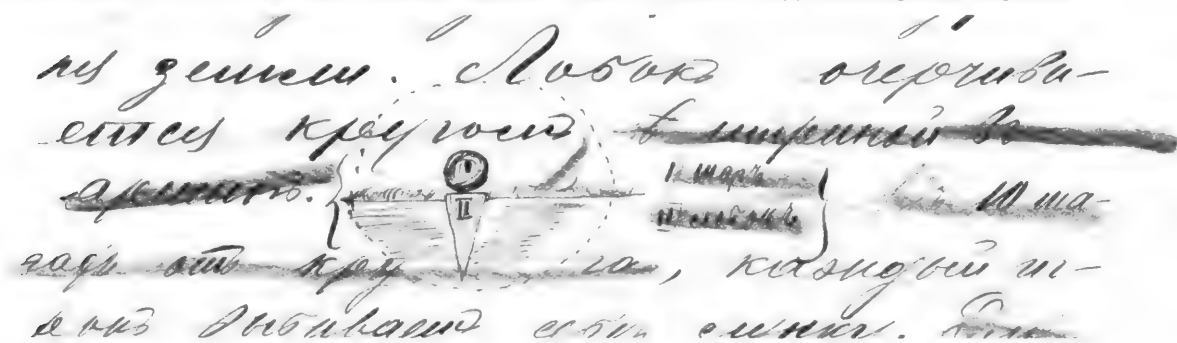 ня земли. Лобокъ очерчива-
ется кругомъ въ шириной въ
аршинъ. I шаръ
II лобокъ
II
10 ша-
отъ круга, каждый иг-
рокъ выбиваетъ себѣ ямки.